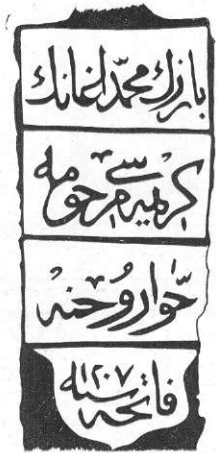 بازرك محمّد اغانك
كريمه سے مرحومه
حوّا روحنه
فاتحه سنه ١٢٠٧